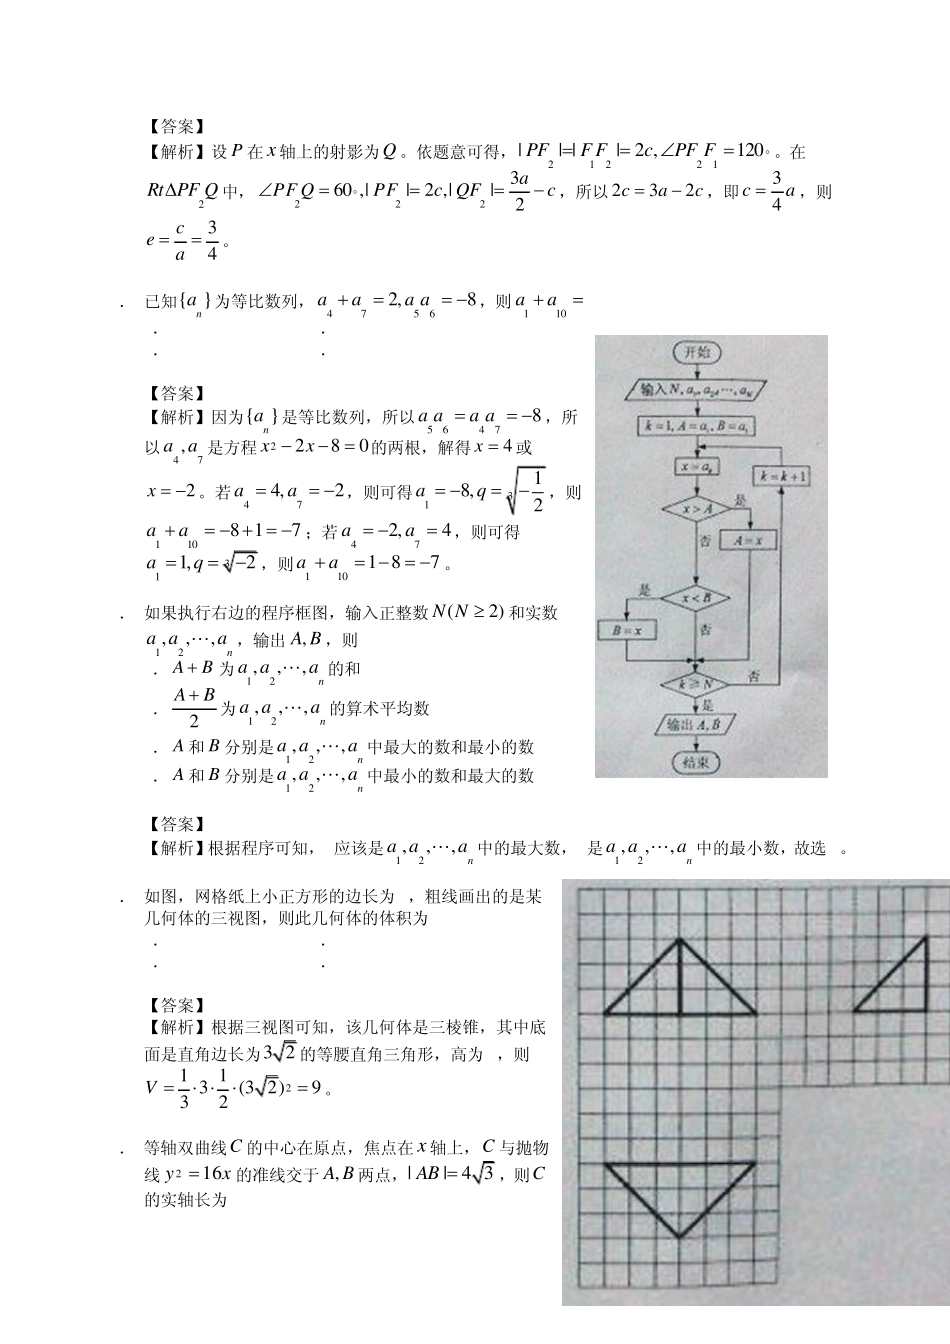 【答案】
【解析】设 P 在 x 轴上的射影为 Q 。依题意可得，| PF₂ |=| F₁F₂ |= 2c, ∠PF₂F₁ = 120° 。在
Rt∆PF₂Q 中， ∠PF₂Q = 60°,| PF₂ |= 2c,| QF₂ |= 3a/2 − c，所以 2c = 3a − 2c ，即 c = 3/4 a ，则
e = c/a = 3/4 。
． 已知{aₙ}为等比数列， a₄ + a₇ = 2, a₅a₆ = −8，则 a₁ + a₁₀ =
． ．
． ．
【答案】
【解析】因为{aₙ}是等比数列，所以 a₅a₆ = a₄a₇ = −8，所
以 a₄ , a₇ 是方程 x² − 2x − 8 = 0 的两根，解得 x = 4 或
x = −2 。若 a₄ = 4, a₇ = −2，则可得 a₁ = −8, q = ∛(−1/2)，则
a₁ + a₁₀ = −8 + 1 = −7 ；若 a₄ = −2, a₇ = 4，则可得
a₁ = 1, q = ∛−2 ，则 a₁ + a₁₀ = 1 − 8 = −7 。
． 如果执行右边的程序框图，输入正整数 N(N ≥ 2) 和实数
a₁, a₂, ⋯, aₙ ，输出 A, B ，则
． A + B 为 a₁, a₂, ⋯, aₙ 的和
． (A + B)/2 为 a₁, a₂, ⋯, aₙ 的算术平均数
． A 和 B 分别是 a₁, a₂, ⋯, aₙ 中最大的数和最小的数
． A 和 B 分别是 a₁, a₂, ⋯, aₙ 中最小的数和最大的数
开始
输入 N, a₁, a₂, ⋯, a_N
k=1, A=a₁, B=a₁
x=a_k
k=k+1
x>A
是
否
A=x
x<B
是
否
B=x
k≥N
否
是
输出 A, B
结束
【答案】
【解析】根据程序可知， 应该是 a₁, a₂, ⋯, aₙ 中的最大数， 是 a₁, a₂, ⋯, aₙ 中的最小数，故选 。
． 如图，网格纸上小正方形的边长为 ，粗线画出的是某
几何体的三视图，则此几何体的体积为
． ．
． ．
【答案】
【解析】根据三视图可知，该几何体是三棱锥，其中底
面是直角边长为 3√2 的等腰直角三角形，高为 ，则
V = 1/3 ⋅ 3 ⋅ 1/2 ⋅ (3√2)² = 9 。
． 等轴双曲线 C 的中心在原点，焦点在 x 轴上， C 与抛物
线 y² = 16x 的准线交于 A, B 两点，| AB |= 4√3 ，则 C
的实轴长为